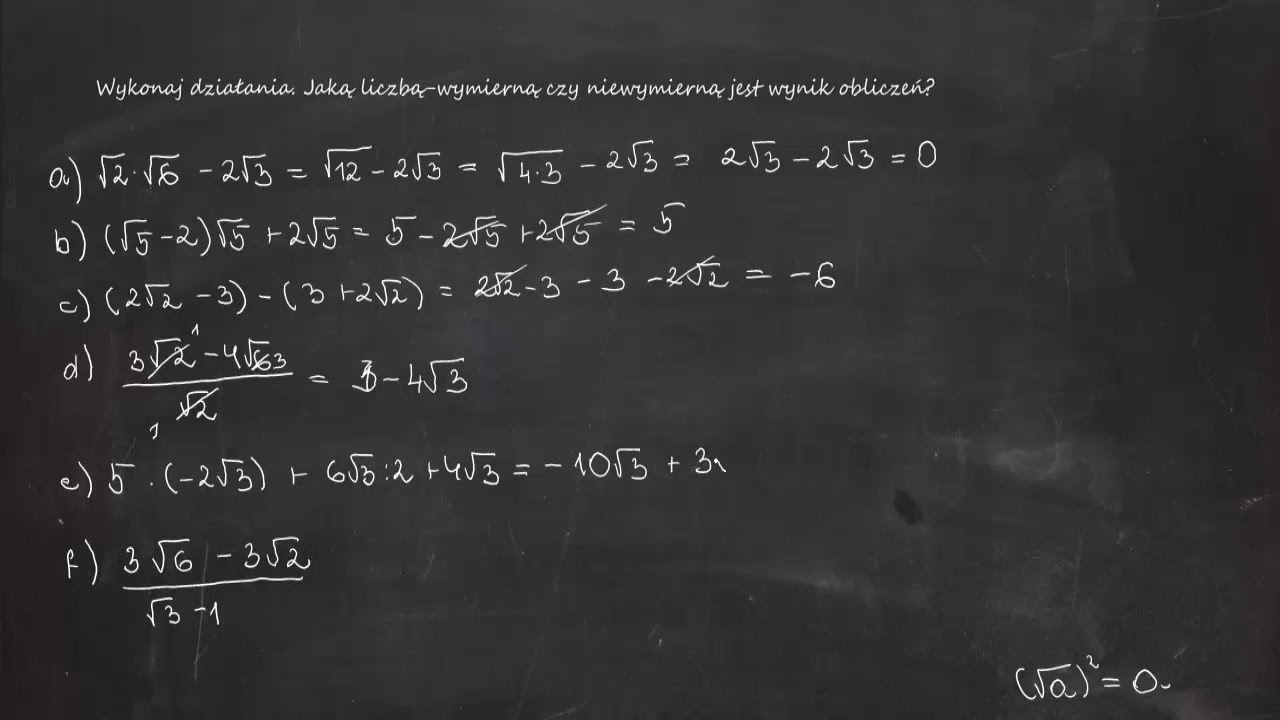 Wykonaj działania. Jaką liczbą-wymierną czy niewymierną jest wynik obliczeń?
a) √2·√6 - 2√3 = √12 - 2√3 = √4·3 - 2√3 = 2√3 - 2√3 = 0
b) (√5 - 2)√5 + 2√5 = 5 - 2√5 + 2√5 = 5
c) (2√2 - 3) - (3 + 2√2) = 2√2 - 3 - 3 - 2√2 = -6
d) (3√2 1 - 4√6 3) / (√2 1) = 3 - 4√3
e) 5 · (-2√3) + 6√3 : 2 + 4√3 = -10√3 + 3
f) (3√6 - 3√2) / (√3 - 1)
(√a)² = a